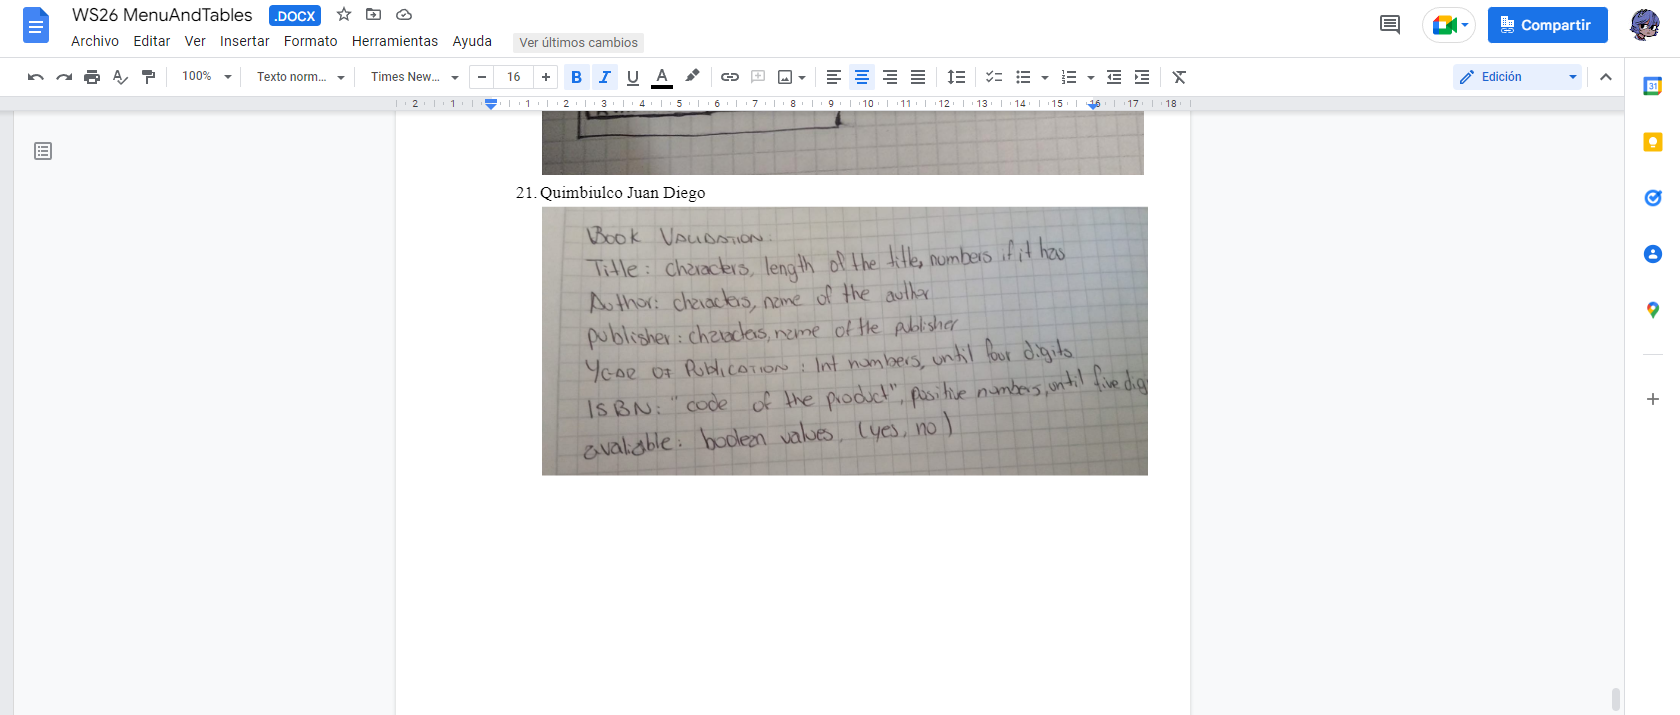 WS26 MenuAndTables .DOCX
Compartir
Archivo Editar Ver Insertar Formato Herramientas Ayuda Ver últimos cambios
100% Texto norm... Times New... − 16 + B I U A Edición
2 1 1 2 3 4 5 6 7 8 9 10 11 12 13 14 15 16 17 18
31
21. Quimbiulco Juan Diego
Book Validation:
Title: characters, length of the title, numbers if it has
Author: characters, name of the author
publisher: characters, name of the publisher
Year of Publication: Int numbers, until four digits
ISBN: "code of the product", positive numbers, until five dig
avaliable: boolean values, (yes, no)